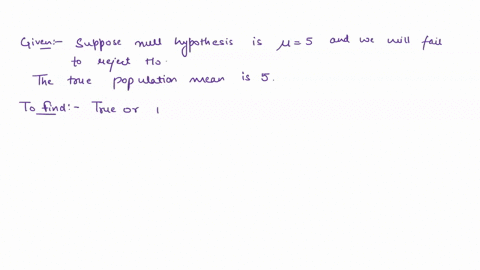 Given:- Suppose null hypothesis is μ = 5 and we will fail
to reject Ho.
The true population mean is 5.
To find:- True or